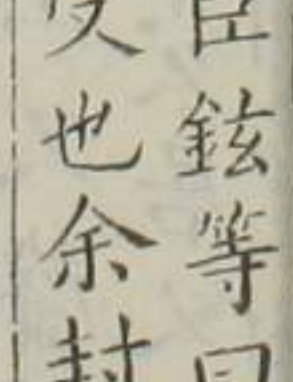 臣鉉等曰
也余封